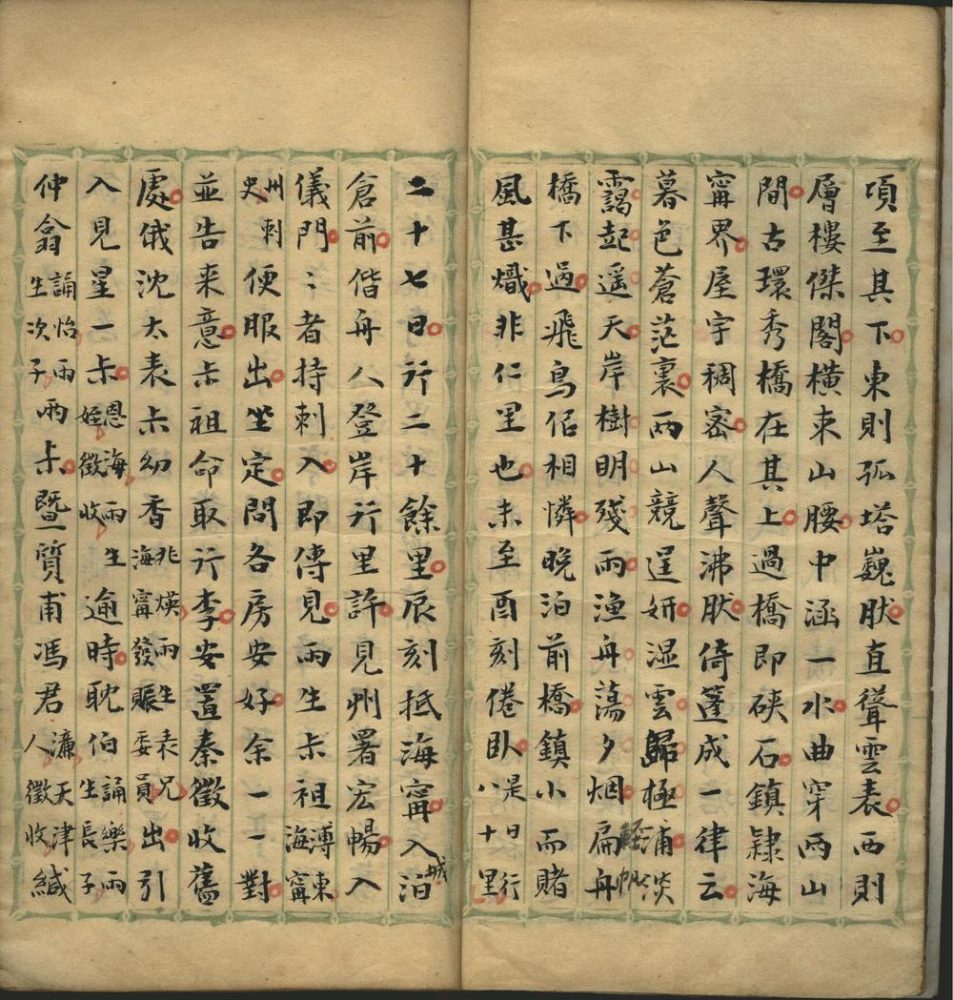 項至其下東則孤塔巍肰直聳雲表西則
層樓傑閣橫束山腰中涵一水曲穿兩山
間古環秀橋在其上過橋即硤石鎮隸海
甯界屋宇稠密人聲沸肰倚篷成一律云
暮色蒼茫裏兩山競逞妍湿雲歸極浦淡
靄起遥天岸樹明殘雨漁舟蕩夕烟扁舟輕帆
橋下過飛鳥侶相憐晚泊前橋鎮小而賭
風甚熾非仁里也未至酉刻倦卧是日行八十里
二十七日行二十餘里辰刻抵海甯入城泊
倉前偕舟人登岸行里許見州署宏暢入
儀門〻者持刺入即傳見雨生尗祖溥東海甯
州刺史便服出坐定問各房安好余一一對
並告来意尗祖命取行李安置秦徵收舊
處俄沈太表尗幼香兆煐雨生表兄海寧發賬委員出引
入見星一尗恩海雨生姪徵收逾時耽伯誦樂雨生長子
仲翕誦怡雨生次子兩尗暨質甫馮君濂天津人徵收緘